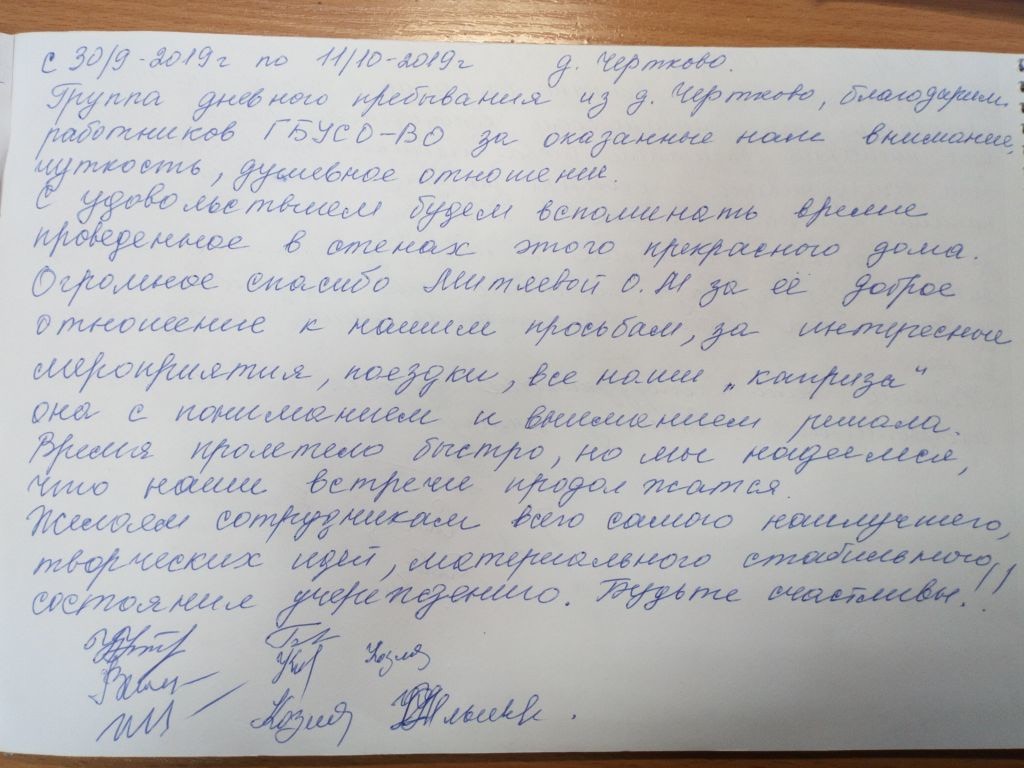 с 30/9-2019г по 11/10-2019г д. Чертково.
Группа дневного пребывания из д. Чертково, благодарим
работников ГБУСО-ВО за оказанные нам внимание,
чуткость, душевное отношение.
С удовольствием будем вспоминать время
проведенное в стенах этого прекрасного дома.
Огромное спасибо Митяевой О.Н за её доброе
отношение к нашим просьбам, за интересные
мероприятия, поездки, все наши „каприза“
она с пониманием и вниманием решала.
Время пролетело быстро, но мы надеемся,
что наши встречи продолжатся.
Желаем сотрудникам всего самого наилучшего,
творческих идей, материального стабильного
состояния учереждению. Будьте счастливы!!!
Козля
Козля